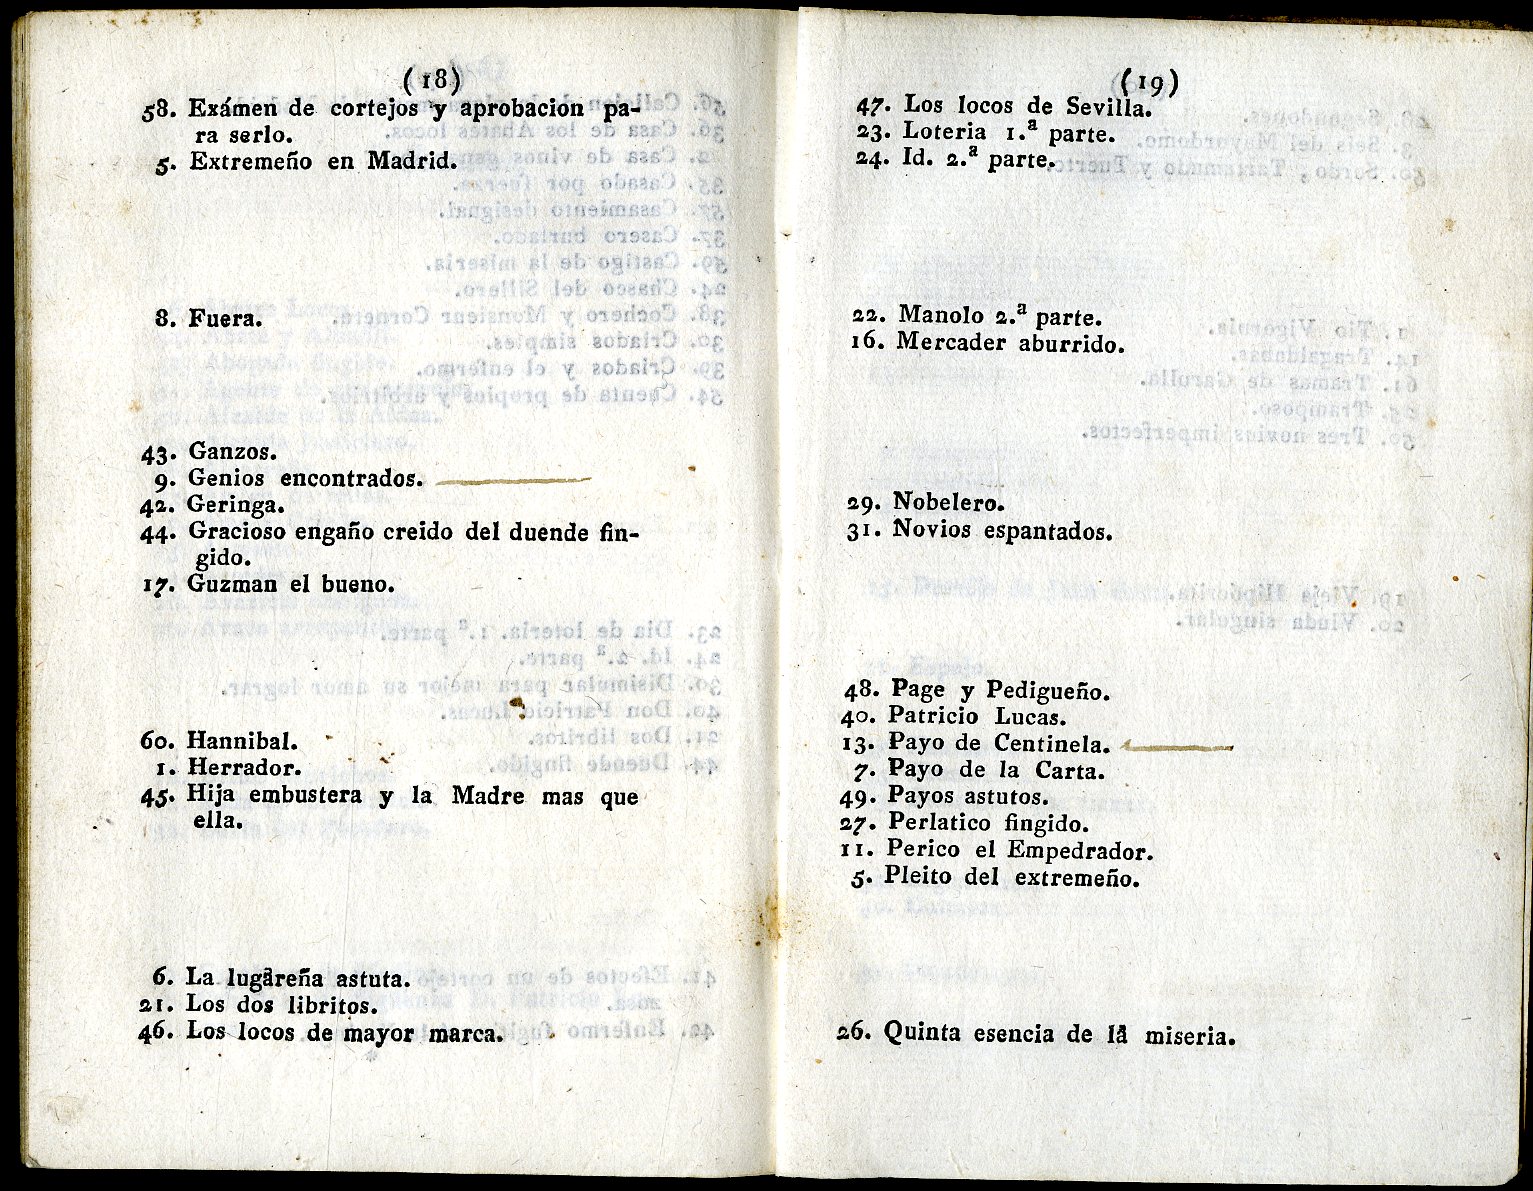 (18)
58. Exámen de cortejos y aprobacion pa-
ra serlo.
5. Extremeño en Madrid.
8. Fuera.
43. Ganzos.
9. Genios encontrados.
42. Geringa.
44. Gracioso engaño creido del duende fin-
gido.
17. Guzman el bueno.
60. Hannibal.
1. Herrador.
45. Hija embustera y la Madre mas que
ella.
6. La lugareña astuta.
21. Los dos libritos.
46. Los locos de mayor marca.
(19)
47. Los locos de Sevilla.
23. Loteria 1.ª parte.
24. Id. 2.ª parte.
22. Manolo 2.ª parte.
16. Mercader aburrido.
29. Nobelero.
31. Novios espantados.
48. Page y Pedigueño.
40. Patricio Lucas.
13. Payo de Centinela.
7. Payo de la Carta.
49. Payos astutos.
27. Perlatico fingido.
11. Perico el Empedrador.
5. Pleito del extremeño.
26. Quinta esencia de la miseria.